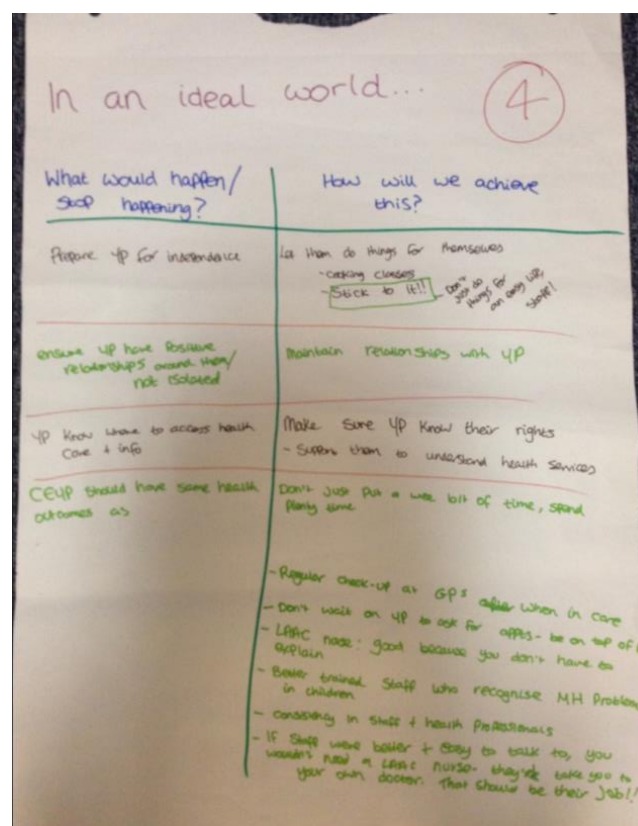 In an ideal world...
4
What would happen/
Stop happening?
How will we achieve
this?
Prepare YP for independence
Let them do things for themselves
- cooking classes
- Stick to it!! - Don't
just do
things for
an easy life,
staff!
ensure YP have Positive
relationships around them/
not isolated
Maintain relationships with YP
YP Know where to access health
care + info
Make sure YP Know their rights
- Support them to understand health services
CEYP should have same health
outcomes as
Don't Just Put a wee bit of time, spend
Plenty time
- Regular check-up at GPs when in care
- Don't wait on YP to ask for appts - be on top of
- LAAC nurse: good because you don't have to
explain
- Better trained Staff who recognise MH Problem
in children
- Consistency in Staff + health Professionals
- If Staff were better + easy to talk to, you
wouldn't need a LAAC nurse - they'd take you to
your own doctor. That should be their Job!!